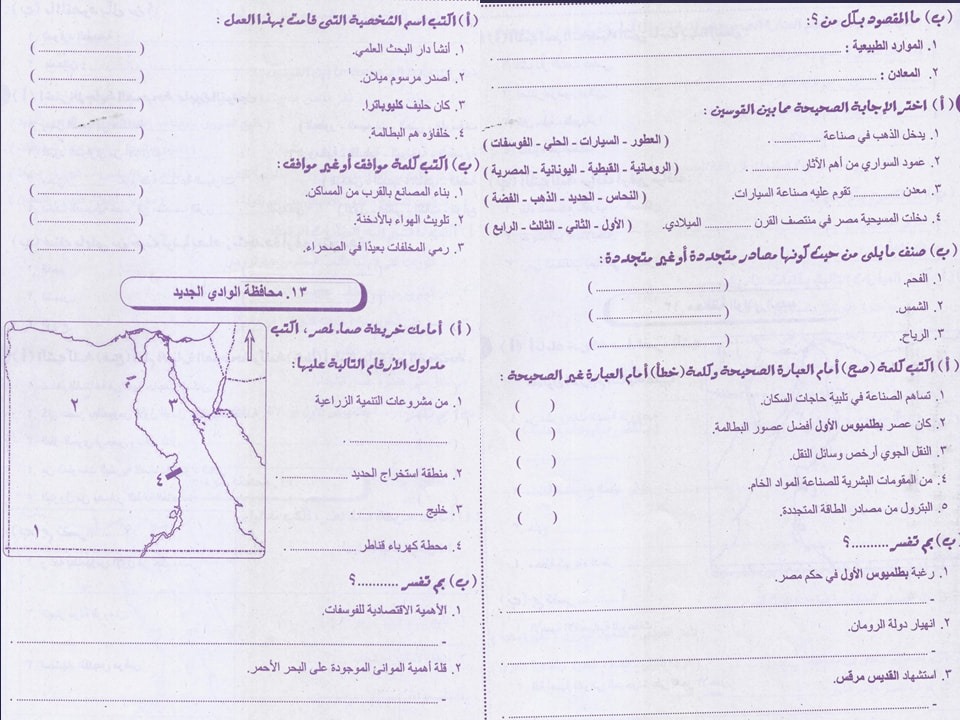 (ب) ما المقصود بكل من؟ :
١. الموارد الطبيعية : ..........
٢. المعادن : ..........
(أ) اختر الإجابة الصحيحة مما بين القوسين :
١. يدخل الذهب في صناعة .......... . ( العطور - السيارات - الحلي - الفوسفات )
٢. عمود السواري من أهم الآثار .......... . ( الرومانية - القبطية - اليونانية - المصرية )
٣. معدن .......... تقوم عليه صناعة السيارات. ( النحاس - الحديد - الذهب - الفضة )
٤. دخلت المسيحية مصر في منتصف القرن .......... الميلادي. ( الأول - الثاني - الثالث - الرابع )
(ب) صنف ما يلى من حيث كونها مصادر متجددة أو غير متجددة :
١. الفحم. (..........)
٢. الشمس. (..........)
٣. الرياح. (..........)
(أ) اكتب كلمة (صح) أمام العبارة الصحيحة وكلمة (خطأ) أمام العبارة غير الصحيحة :
١. تساهم الصناعة في تلبية حاجات السكان. ( )
٢. كان عصر بطلميوس الأول أفضل عصور البطالمة. ( )
٣. النقل الجوي أرخص وسائل النقل. ( )
٤. من المقومات البشرية للصناعة المواد الخام. ( )
٥. البترول من مصادر الطاقة المتجددة. ( )
(ب) بم تفسر ..........؟
١. رغبة بطلميوس الأول في حكم مصر.
- ..........
٢. انهيار دولة الرومان.
- ..........
٣. استشهاد القديس مرقس.
- ..........
(أ) اكتب اسم الشخصية التي قامت بهذا العمل :
١. أنشأ دار البحث العلمي. (..........)
٢. أصدر مرسوم ميلان. (..........)
٣. كان حليف كليوباترا. (..........)
٤. خلفاؤه هم البطالمة. (..........)
(ب) اكتب كلمة موافق أو غير موافق :
١. بناء المصانع بالقرب من المساكن. (..........)
٢. تلويث الهواء بالأدخنة. (..........)
٣. رمي المخلفات بعيدًا في الصحراء. (..........)
١٣. محافظة الوادي الجديد
(أ) أمامك خريطة صماء لمصر ، اكتب
مدلول الأرقام التالية عليها :
١. من مشروعات التنمية الزراعية
..........
٢. منطقة استخراج الحديد ..........
٣. خليج ..........
٤. محطة كهرباء قناطر ..........
٢
٣
٤
١
(ب) بم تفسر ..........؟
١. الأهمية الاقتصادية للفوسفات.
- ..........
٢. قلة أهمية الموانئ الموجودة على البحر الأحمر.
- ..........